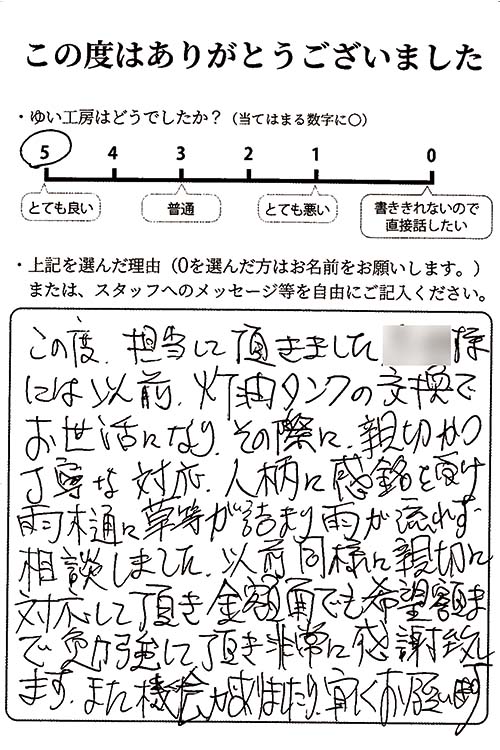 この度はありがとうございました
・ゆい工房はどうでしたか？（当てはまる数字に〇）
5 4 3 2 1 0
とても良い 普通 とても悪い 書ききれないので
直接話したい
・上記を選んだ理由（0を選んだ方はお名前をお願いします。）
または、スタッフへのメッセージ等を自由にご記入ください。
この度、担当して頂きました 様
には以前、灯油タンクの交換で
お世話になり、その際に、親切かつ
丁寧な対応、人柄に感銘を受け
雨樋に草等が詰まり雨が流れず
相談しました。以前同様に親切に
対応して頂き金額面でも希望額ま
で勉強して頂き非常に感謝致し
ます。また機会がありましたら、宜しくお願い致します